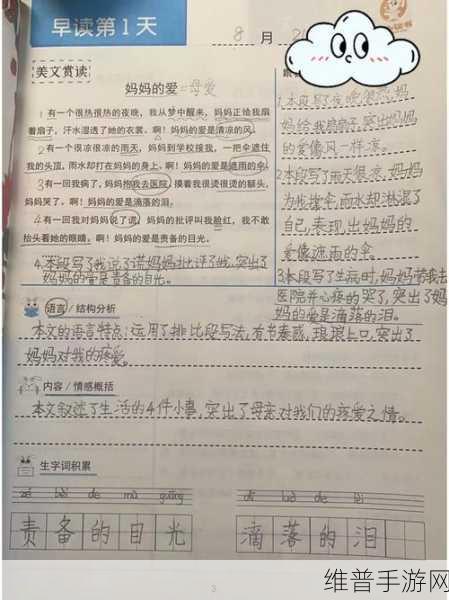 早读第1天
8 月
美文赏读
妈妈的爱 母爱
1 有一个很热很热的夜晚，我从梦中醒来，妈妈正给我扇
着扇子，汗水湿透了她的衣裳。啊！妈妈的爱是清凉的风。
2 有一个很凉很凉的雨天，妈妈到学校接我，一把伞遮住
我的头顶，雨水却打在妈妈的身上。啊！妈妈的爱是遮雨的伞。
3 有一回我病了，妈妈抱我去医院，摸着我很烫很烫的额头，
妈妈哭了。啊！妈妈的爱是滴落的泪。
4 有一回我对妈妈说了谎，妈妈的批评叫我脸红，我不敢
抬头看她的眼睛。啊！妈妈的爱是责备的目光。
4.本段写了我说了谎妈妈批评了我，突出了
妈妈的爱是责备的目光。
1本段写了夜晚很热，妈
妈给我扇扇子，突出妈妈
的爱像风一样凉。
2本段写了雨天很凉，妈妈
为我撑伞，而水却淋湿了
自己，表现出妈妈的
爱像遮雨的伞。
3本段写了生病时，妈妈带我去
医院并心疼的哭了，突出了妈
妈的爱是滴落的泪。
语言 / 结构分析
本文的语言特点：运用了排比段写法，有节奏感，琅琅上口，突出了
妈妈对我的疼爱。
内容 / 情感概括
本文叙述了生活的4件小事，突出了母亲对我们的疼爱之情。
生字词积累
zé bèi de mù guāng
dī luò de lèi
责备的目光
滴落的泪
3
维普手游网